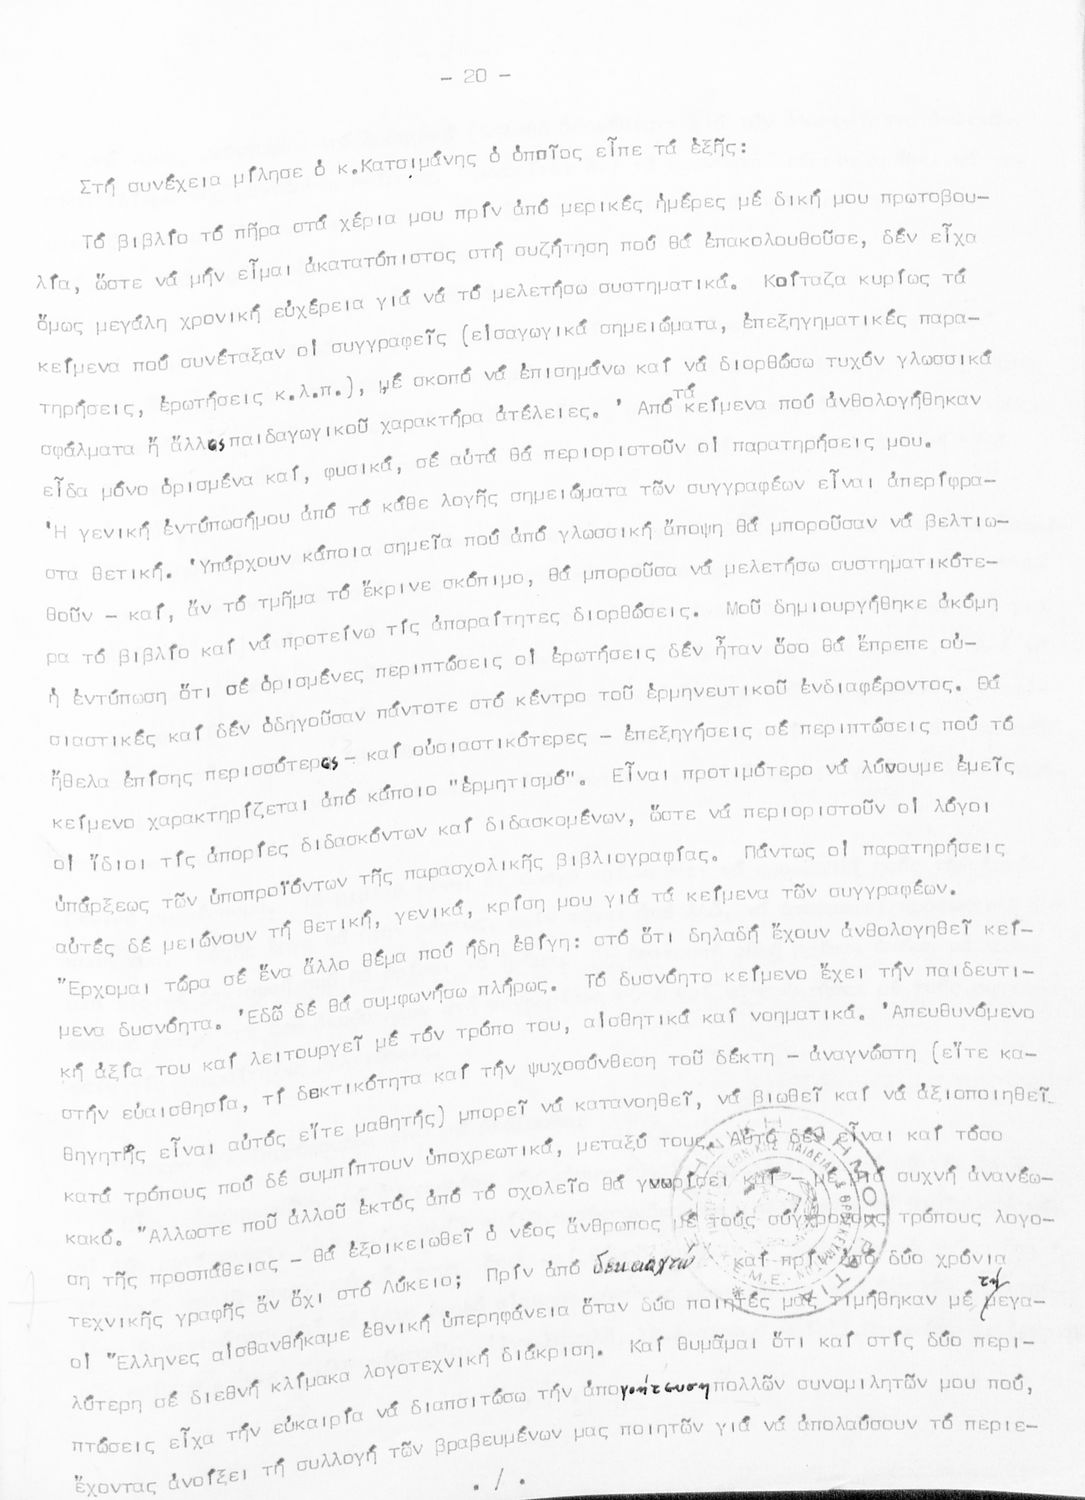 - 20 -
Στή συνέχεια μίλησε ὁ κ.Κατσιμάνης ὁ ὁποῖος εἶπε τά ἑξῆς:
Τό βιβλίο τό πῆρα στά χέρια μου πρίν ἀπό μερικές ἡμέρες μέ δική μου πρωτοβου-
λία, ὥστε νά μήν εἶμαι ἀκατατόπιστος στή συζήτηση πού θά ἐπακολουθοῦσε, δέν εἶχα
ὅμως μεγάλη χρονική εὐχέρεια γιά νά τό μελετήσω συστηματικά. Κοίταζα κυρίως τά
κείμενα πού συνέταξαν οἱ συγγραφεῖς (εἰσαγωγικά σημειώματα, ἐπεξηγηματικές παρα-
τηρήσεις, ἐρωτήσεις κ.λ.π.), μέ σκοπό νά ἐπισημάνω καί νά διορθώσω τυχόν γλωσσικά
σφάλματα ἤ ἄλλες παιδαγωγικοῦ χαρακτήρα ἀτέλειες. 'Από τά κείμενα πού ἀνθολογήθηκαν
εἶδα μόνο ὁρισμένα καί, φυσικά, σέ αὐτά θά περιοριστοῦν οἱ παρατηρήσεις μου.
'Η γενική ἐντύπωσήμου ἀπό τά κάθε λογῆς σημειώματα τῶν συγγραφέων εἶναι ἀπερίφρα-
στα θετική. 'Υπάρχουν κάποια σημεῖα πού ἀπό γλωσσική ἄποψη θά μποροῦσαν νά βελτιω-
θοῦν - καί, ἄν τό τμῆμα τό ἔκρινε σκόπιμο, θά μποροῦσα νά μελετήσω συστηματικότε-
ρα τό βιβλίο καί νά προτείνω τίς ἀπαραίτητες διορθώσεις. Μοῦ δημιουργήθηκε ἀκόμη
ἡ ἐντύπωση ὅτι σέ ὁρισμένες περιπτώσεις οἱ ἐρωτήσεις δέν ἦταν ὅσο θά ἔπρεπε οὐ-
σιαστικές καί δέν ὁδηγοῦσαν πάντοτε στό κέντρο τοῦ ἑρμηνευτικοῦ ἐνδιαφέροντος. Θά
ἤθελα ἐπίσης περισσότερες - καί οὐσιαστικότερες - ἐπεξηγήσεις σέ περιπτώσεις πού τό
κείμενο χαρακτηρίζεται ἀπό κάποιο "ἑρμητισμό". Εἶναι προτιμότερο νά λύνουμε ἐμεῖς
οἱ ἴδιοι τίς ἀπορίες διδασκόντων καί διδασκομένων, ὥστε νά περιοριστοῦν οἱ λόγοι
ὑπάρξεως τῶν ὑποπροϊόντων τῆς παρασχολικῆς βιβλιογραφίας. Πάντως οἱ παρατηρήσεις
αὐτές δέ μειώνουν τή θετική, γενικά, κρίση μου γιά τά κείμενα τῶν συγγραφέων.
"Ερχομαι τώρα σέ ἕνα ἄλλο θέμα πού ἤδη ἐθίγη: στό ὅτι δηλαδή ἔχουν ἀνθολογηθεῖ κεί-
μενα δυσνόητα. 'Εδῶ δέ θά συμφωνήσω πλήρως. Τό δυσνόητο κείμενο ἔχει τήν παιδευτι-
κή ἀξία του καί λειτουργεῖ μέ τόν τρόπο του, αἰσθητικά καί νοηματικά. 'Απευθυνόμενο
στήν εὐαισθησία, τή δεκτικότητα καί τήν ψυχοσύνθεση τοῦ δέκτη - ἀναγνώστη (εἴτε κα-
θηγητής εἶναι αὐτός εἴτε μαθητής) μπορεῖ νά κατανοηθεῖ, νά βιωθεῖ καί νά ἀξιοποιηθεῖ
κατά τρόπους πού δέ συμπίπτουν ὑποχρεωτικά, μεταξύ τους. Αὐτό δέν εἶναι καί τόσο
κακό. "Αλλωστε ποῦ ἀλλοῦ ἐκτός ἀπό τό σχολεῖο θά γνωρίσει καί - μέ μιά συχνή ἀνανέω-
ση τῆς προσπάθειας - θά ἐξοικειωθεῖ ὁ νέος ἄνθρωπος μέ τούς σύγχρονους τρόπους λογο-
τεχνικῆς γραφῆς ἄν ὄχι στό Λύκειο; Πρίν ἀπό δεκαοχτώ καί πρίν ἀπό δύο χρόνια
οἱ Ἕλληνες αἰσθανθήκαμε ἐθνική ὑπερηφάνεια ὅταν δύο ποιητές μας τιμήθηκαν μέ τή μεγα-
λύτερη σέ διεθνή κλίμακα λογοτεχνική διάκριση. Καί θυμᾶμαι ὅτι καί στίς δύο περι-
πτώσεις εἶχα τήν εὐκαιρία νά διαπσιτώσω τήν ἀπογοήτευση πολλῶν συνομιλητῶν μου πού,
ἔχοντας ἀνοίξει τή συλλογή τῶν βραβευμένων μας ποιητῶν γιά νά ἀπολαύσουν τό περιε-
. / .